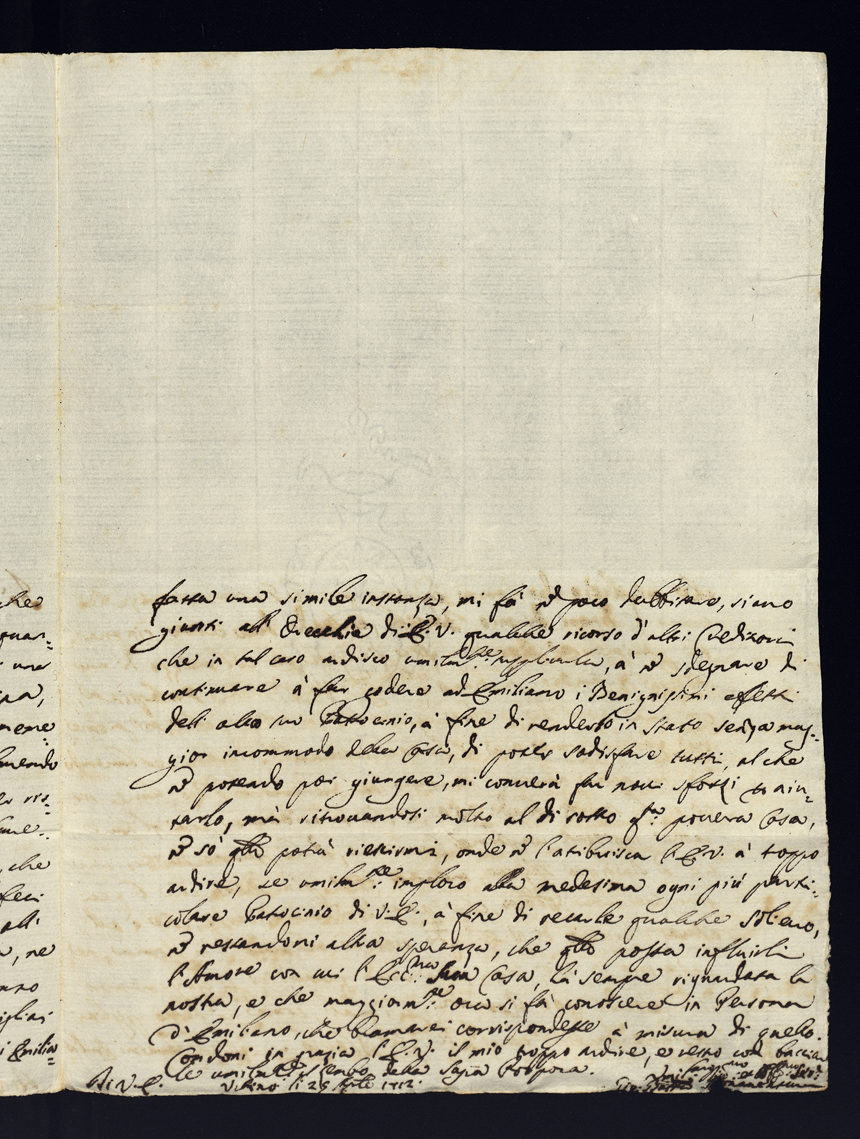 che
quar=
una
pra,
mene=
mendo
ris=
che
feci
alli
, ne
nno
i Emilia=
fatta una simile instanza, mi fà nõ poco dubbitare, siano
giunti all' Orecchie di V. qualche ricorso d'altri Creditori
che in tal caso ardisco umilmte supplicarla, à nõ sdegnare di
continuare à far godere ad Emiliano i Benignissimi effetti
dell' alto suo Patrocinio, à fine di renderlo in stato senza mag=
gior incommodo della Casa, di poter sodisfare tutti, al che
nõ potendo poi giungere, mi converà far novi sforzi ajiu=
tarlo, mà ritrovandosi molto al di sotto qta povera Casa,
nõ sò qto potrà riescirmi, onde nõ l'atribuisca l'E.V. à troppo
ardire, se umilmte imploro alla medesima ogni più parti=
colare Patrocinio di V.E., à fine di recarle qualche solievo,
nõ restandomi altra speranza, che qto possa influirli
l'Amore con cui l'Eccma Sua Casa, hà sempre riguardata la
nostra, e che maggiormte ora si fà conoscere in Persona
d'Emiliano, che bramarei corrispondesse à misura di quello.
Condoni in grazia l'E.V. il mio troppo ardire, e resto con bacciar
le umilmte il lembo della Sagra Porpora.
Di V.E. li 26 1712.